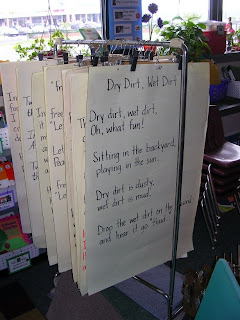 Dry Dirt, Wet Dirt
Dry dirt, wet dirt,
Oh, what fun!
Sitting in the backyard,
playing in the sun.
Dry dirt is dusty,
wet dirt is mud.
Drop the wet dirt on the ground
and hear it go "thud."